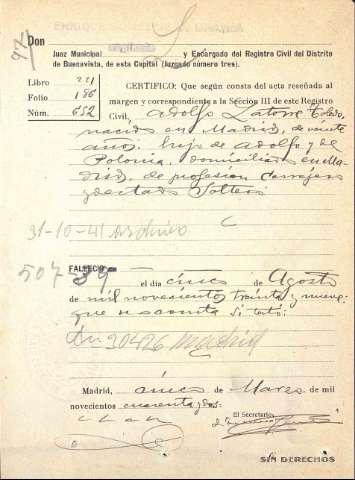 97
Don
Juez Municipal y Encargado del Registro Civil del Distrito
de Buenavista, de esta Capital (Juzgado número tres).
Libro 221
Folio 186
Núm. 652
CERTIFICO: Que según consta del acta reseñada al
margen y correspondiente a la Sección III de este Registro
Civil, Adolfo Latorre Toledo,
nacido en Madrid, de veinte
años, hijo de Adolfo y de
Polonia, domiciliado en Ma-
drid, de profesion Cerrajero
y de estado Soltero
31-10-41 Archivo
FALLECIO
507-39
el día cinco de Agosto
de mil novecientos treinta y nueve:
30426 Madrid
Madrid, cinco de Marzo de mil
novecientos cuarenta y dos.
El Secretario
SIN DERECHOS